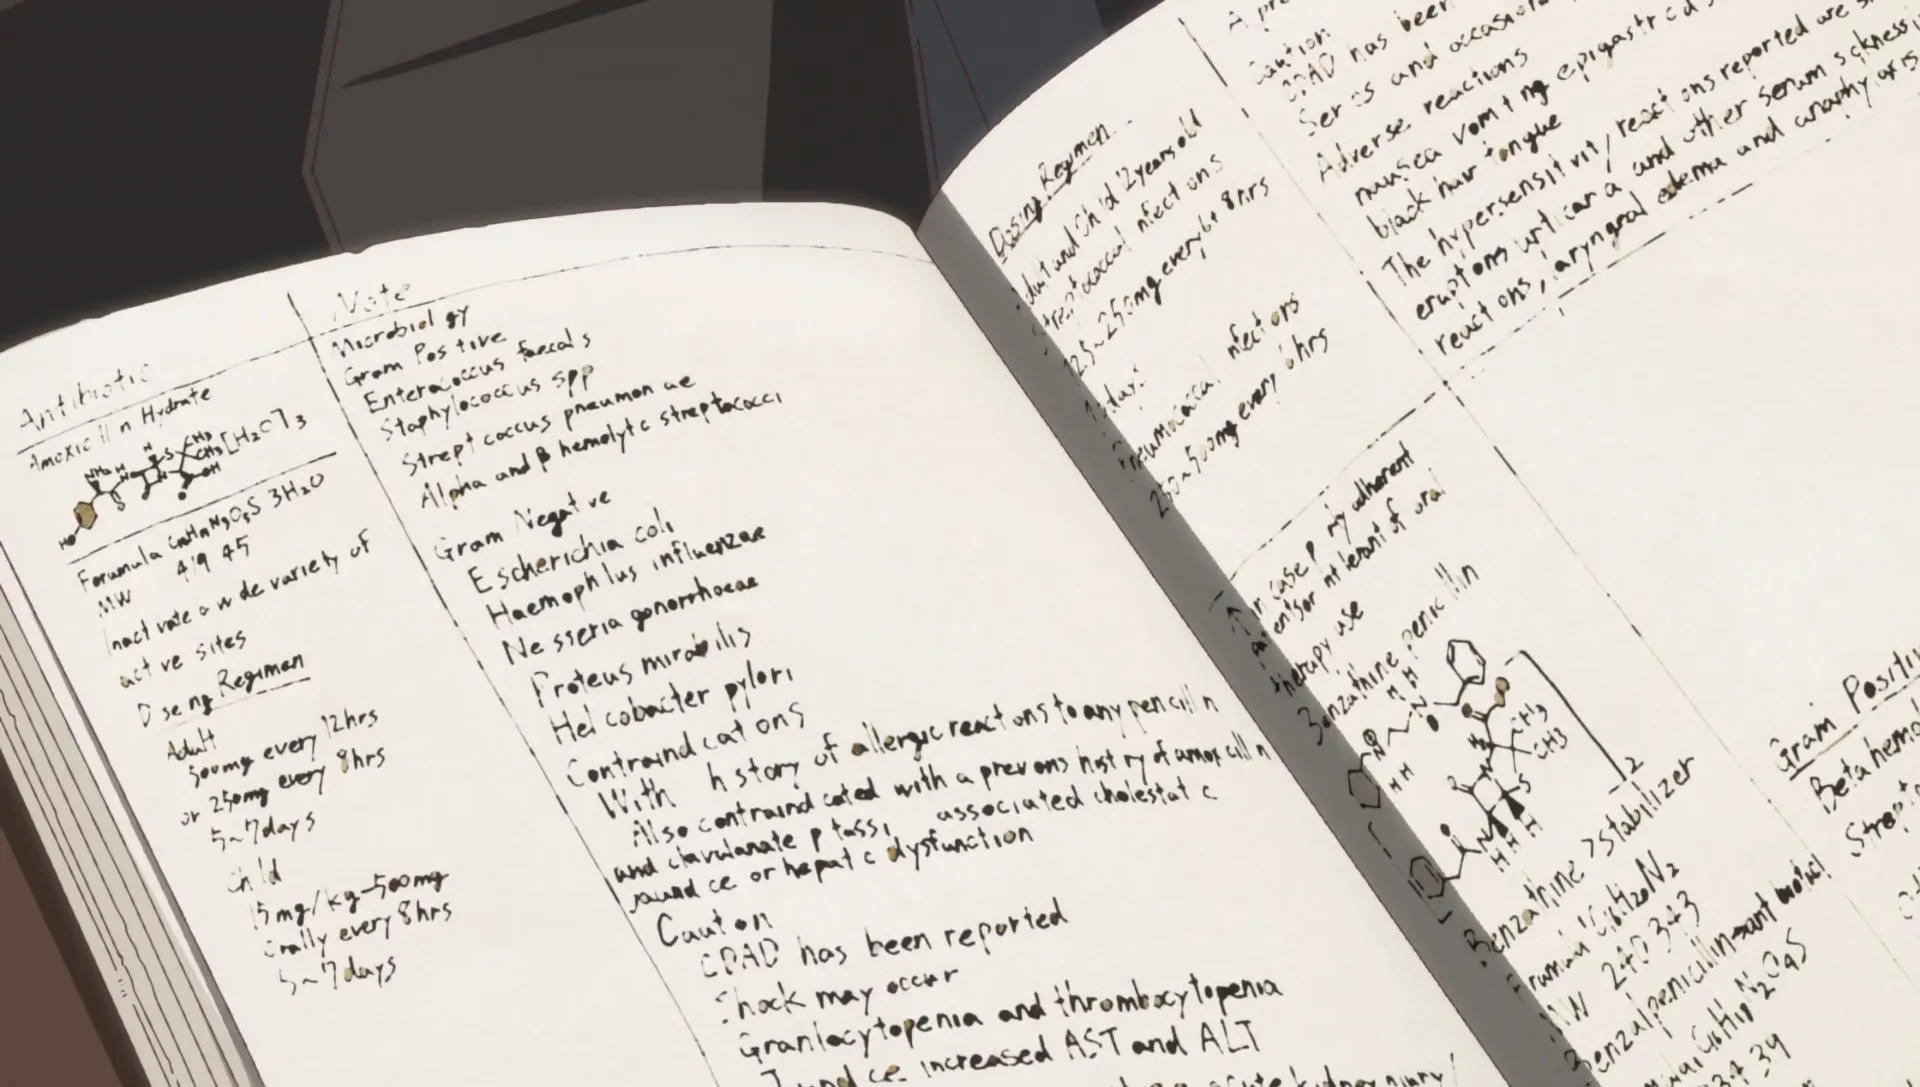 Antibiotic
Amoxic ll n Hydrate
NH2 H H S CH3 CH3 [H2O]3
OH
HO
Forumula C16H19N3O5S 3H2O
MW 419 45
Inact vate a w de variety of
act ve sites
D se ng Regimen
Adult
500mg every 12hrs
or 250mg every 8hrs
5~7days
Ch ld
15mg/kg~500mg
orally every 8hrs
5~7days
Note
Microbiol gy
Gram Pos tive
Enterococcus faecal s
Staphylococcus spp
Strept coccus pneumon ae
Alpha and β hemolyt c streptococci
Gram Negat ve
Escherichia coli
Haemoph lus influenzae
Ne sseria gonorrhoeae
Proteus mirabilis
Hel cobacter pylori
Contraind cat ons
With h story of allergic react ons to any pen cill n
Also contraind cated with a previous hist ry of amox cill n
and clavulanate p tassi associated cholestat c
jaund ce or hepat c dysfunction
Caut on
CDAD has been reported
Shock may occur
Granlocytopenia and thrombocytopenia
Jaund ce increased AST and ALT
acute kidney injury/
Dosing Regimen
Adult and Ch ld 12 years old
Streptococcal nfect ons
125~250mg every 6~8hrs
days
Pneumococcal nfect ons
250~500mg every 6hrs
↑ In case p my adherent
int lerant of oral
therapy use
Benzathine penicillin
CH3
CH3
2
Benzathine >stabilizer
Frumula C16H20N2
MW 240 343
Benzylpenicillin
C16H18N2O4S
Caution
CDAD has been
Ser us and occasional
Adverse reactions
nausea vomit ng epigastr c
black hair tongue
The hypersensit vit/react ons reported are
eruptions urt car a and other serum s ckness
react ons, laryngeal edema and anaphylaxis
Gram Positiv
Beta hemol
Strept